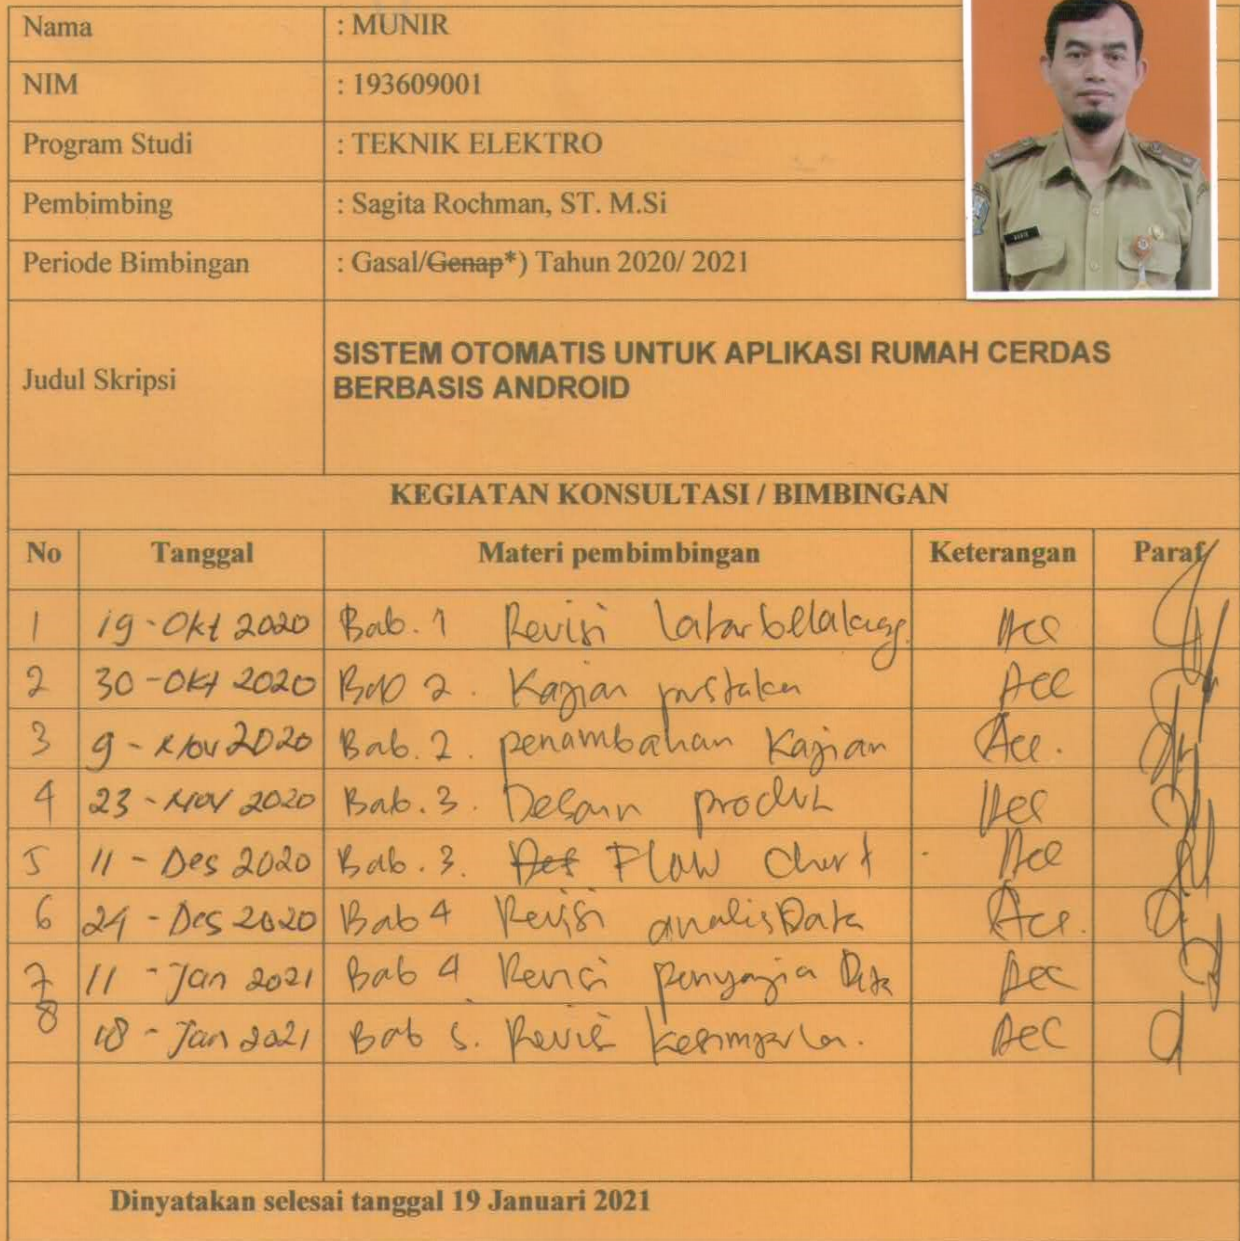 Nama : MUNIR
NIM : 193609001
Program Studi : TEKNIK ELEKTRO
Pembimbing : Sagita Rochman, ST. M.Si
Periode Bimbingan : Gasal/Genap*) Tahun 2020/ 2021
Judul Skripsi
SISTEM OTOMATIS UNTUK APLIKASI RUMAH CERDAS
BERBASIS ANDROID
KEGIATAN KONSULTASI / BIMBINGAN
No Tanggal Materi pembimbingan Keterangan Paraf
1 19 - Okt 2020 Bab. 1 Revisi latar belakang. Acc
2 30 - Okt 2020 Bab 2. Kajian pustaka Acc
3 9 - Nov 2020 Bab. 2. penambahan Kajian Acc.
4 23 - Nov 2020 Bab. 3. Desain produk Acc
5 11 - Des 2020 Bab. 3. Flow chart Acc
6 24 - Des 2020 Bab 4 Revisi analis Data Acc.
7 11 - Jan 2021 Bab 4 Revisi Data Acc
8 18 - Jan 2021 Bab 5. Revisi Acc
Dinyatakan selesai tanggal 19 Januari 2021